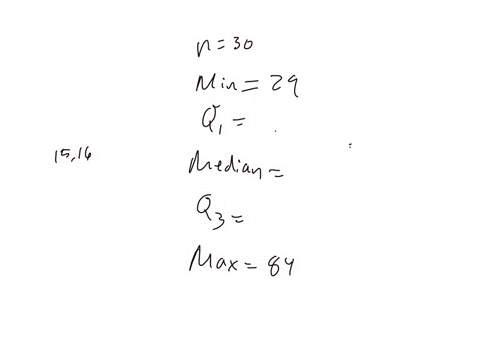 n = 30
Min = 29
Q1 =
15, 16
Median =
Q3 =
Max = 84